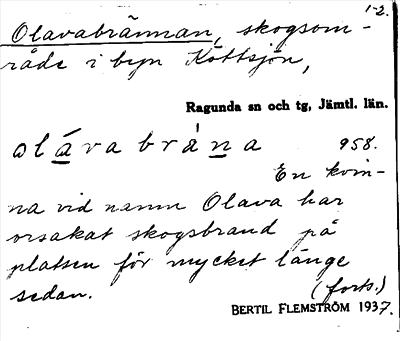 1-2.
Olavabrännan, skogsom-
råde i byn Köttsjön,
Ragunda sn och tg, Jämtl. län.
olávabràna 958.
En kvin-
na vid namn Olava har
orsakat skogsbrand på
platsen för mycket länge
sedan. (forts.)
BERTIL FLEMSTRÖM 1937.